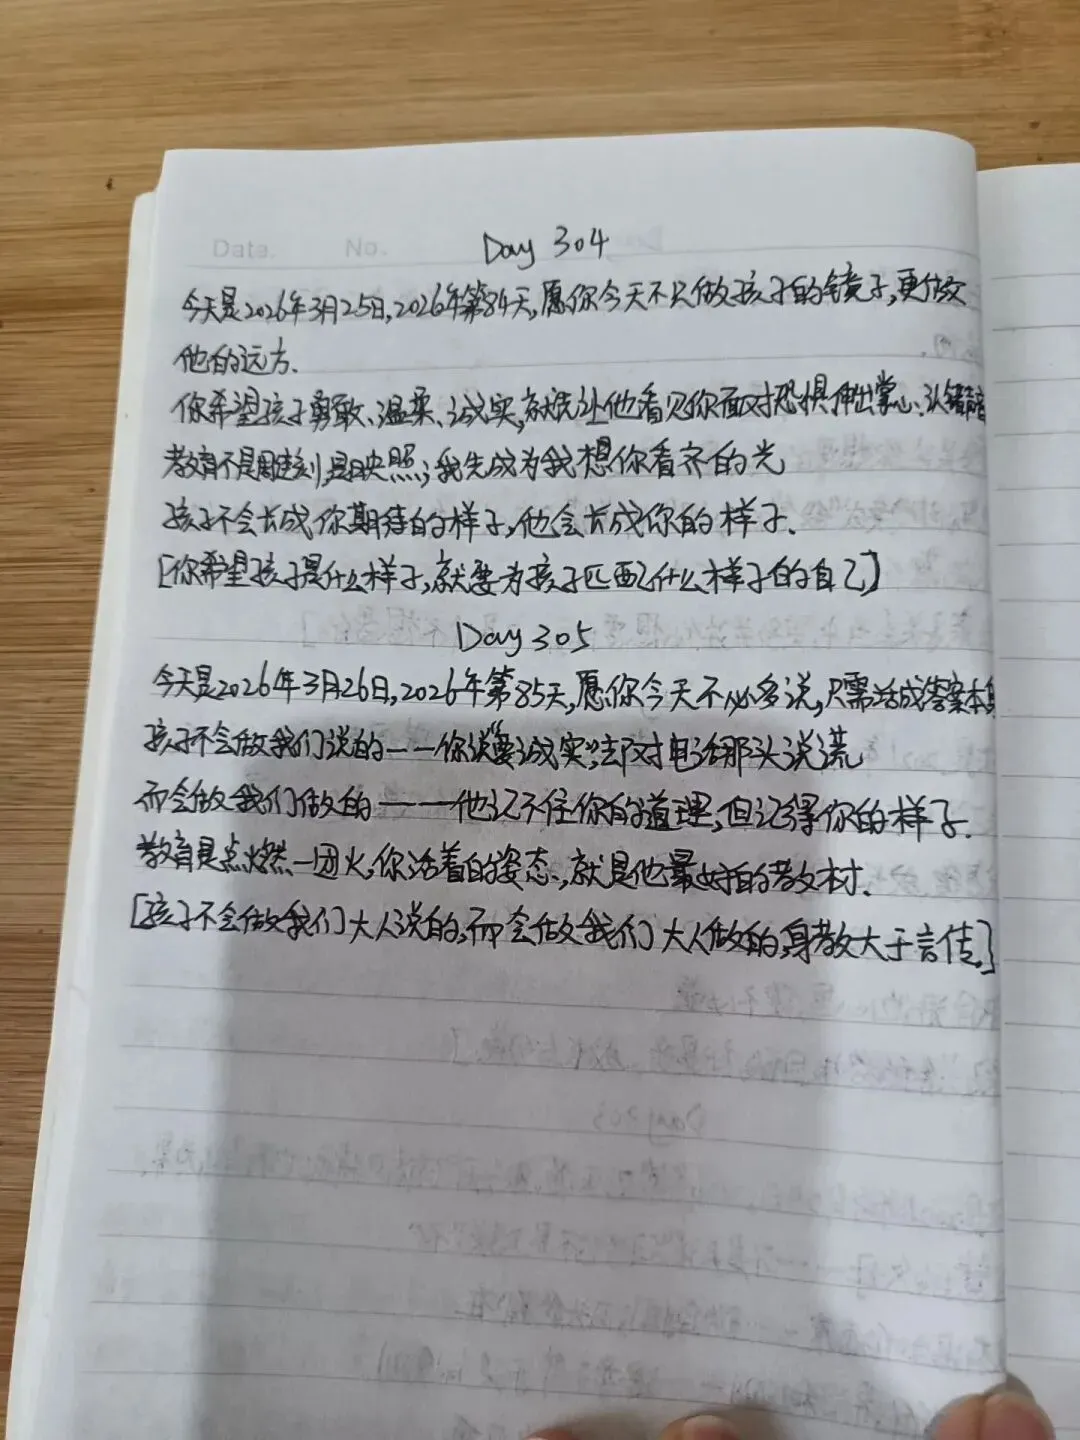 Date.
No.
Day 304
今天是2026年3月25日,2026年第84天,愿你今天不只做孩子的镜子,更做
他的远方.
你希望孩子勇敢、温柔、诚实,就先让他看见你面对恐惧伸出掌心、认错
教育不是雕刻,是映照;我先成为我想你看齐的光
孩子不会长成你期待的样子,他会长成你的样子.
[你希望孩子是什么样子,就要为孩子匹配什么样子的自己]
Day 305
今天是2026年3月26日,2026年第85天,愿你今天不必多说,只需活成答案本身
孩子不会做我们说的——你说“要诚实”,却对电话那头说谎
而会做我们做的——他记不住你的道理,但记得你的样子.
教育是点燃一团火,你活着的姿态,就是他最好的教材.
[孩子不会做我们大人说的,而会做我们大人做的,身教大于言传.]